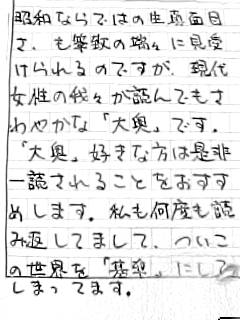 昭和ならではの生真面目
さ、も筆致の端々に見受
けられるのですが、現代
女性の我々が読んでもさ
わやかな「大奥」です。
「大奥」好きな方は是非
一読されることをおすす
めします。私も何度も読
み返してまして、ついこ
の世界を「基準」にして
しまってます。